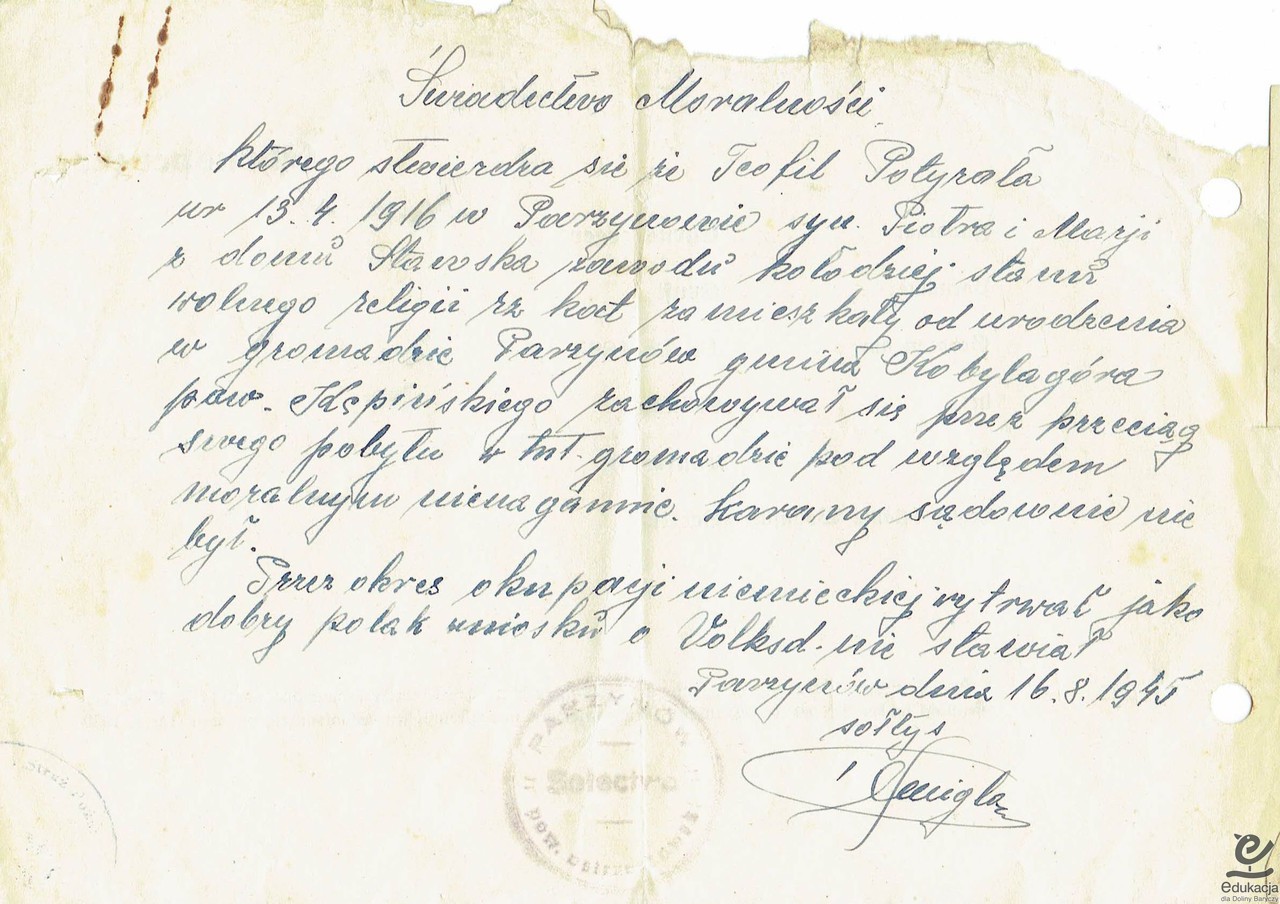 Świadectwo Moralności
którego stwierdza się że Teofil Potyrała
ur 13.4.1916 w Parzynowie syn. Piotra i Marji
z domů Stawska zawodů kołodziej stanů
wolnego religii rz kat zamieszkały od urodzenia
w gromadzie Parzynów gmina Kobylagóra
pow. Kępińskiego zachowywał się przez przeciąg
swego pobytu w tut. gromadzie pod względem
moralnym nienagannie. Karany sądownie nie
był.
Przez okres okupacji niemieckiej wytrwał jako
dobry polak wniosků o Volksd. nie stawiał
Parzynów dnia 16.8.1945
sołtys
PARZYNÓW
Sołectwo
pow.
Straż
edukacja
dla Doliny Baryczy